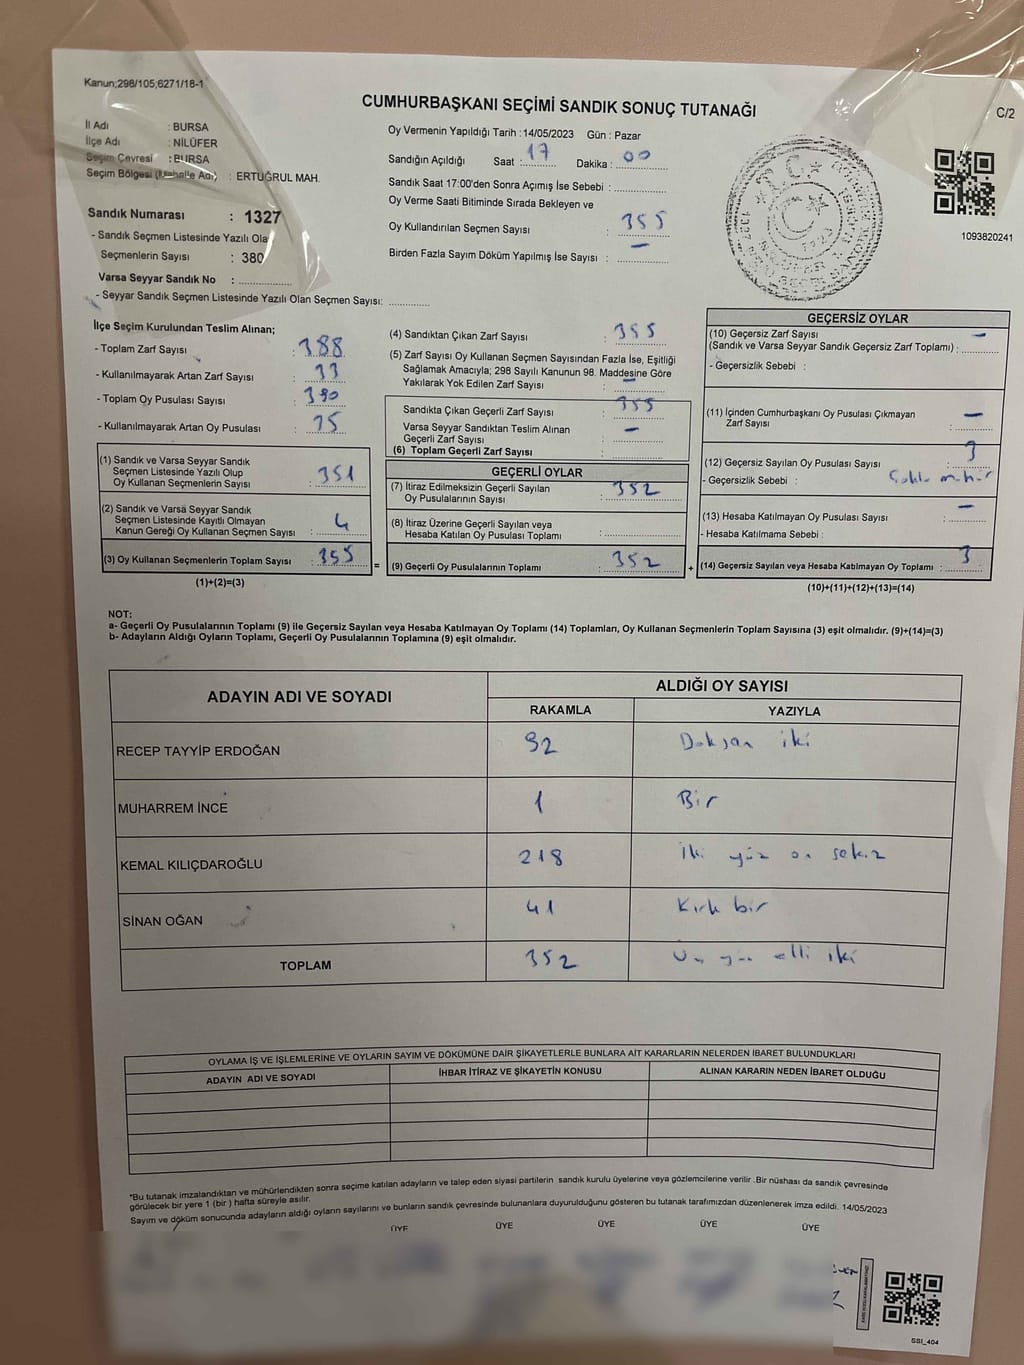 Kanun;298/105,6271/18-1
CUMHURBAŞKANI SEÇİMİ SANDIK SONUÇ TUTANAĞI
C/2
İl Adı : BURSA
İlçe Adı : NİLÜFER
Seçim Çevresi : BURSA
Seçim Bölgesi (Mahalle Adı) : ERTUĞRUL MAH.
Sandık Numarası : 1327
- Sandık Seçmen Listesinde Yazılı Ola
Seçmenlerin Sayısı : 380
Varsa Seyyar Sandık No :
- Seyyar Sandık Seçmen Listesinde Yazılı Olan Seçmen Sayısı:
Oy Vermenin Yapıldığı Tarih : 14/05/2023 Gün : Pazar
Sandığın Açıldığı Saat : 17 Dakika : 00
Sandık Saat 17:00'den Sonra Açımış İse Sebebi :
Oy Verme Saati Bitiminde Sırada Bekleyen ve
Oy Kullandırılan Seçmen Sayısı : 355
Birden Fazla Sayım Döküm Yapılmış İse Sayısı : –
1093820241
İlçe Seçim Kurulundan Teslim Alınan;
- Toplam Zarf Sayısı : 388
- Kullanılmayarak Artan Zarf Sayısı : 33
- Toplam Oy Pusulası Sayısı : 390
- Kullanılmayarak Artan Oy Pusulası :
(1) Sandık ve Varsa Seyyar Sandık
Seçmen Listesinde Yazılı Olup
Oy Kullanan Seçmenlerin Sayısı : 351
(2) Sandık ve Varsa Seyyar Sandık
Seçmen Listesinde Kayıtlı Olmayan
Kanun Gereği Oy Kullanan Seçmen Sayısı : 4
(3) Oy Kullanan Seçmenlerin Toplam Sayısı : 355 =
(1)+(2)=(3)
(4) Sandıktan Çıkan Zarf Sayısı : 355
(5) Zarf Sayısı Oy Kullanan Seçmen Sayısından Fazla İse, Eşitliği
Sağlamak Amacıyla; 298 Sayılı Kanunun 98. Maddesine Göre
Yakılarak Yok Edilen Zarf Sayısı : –
Sandıkta Çıkan Geçerli Zarf Sayısı : 355
Varsa Seyyar Sandıktan Teslim Alınan
Geçerli Zarf Sayısı : –
(6) Toplam Geçerli Zarf Sayısı :
GEÇERLİ OYLAR
(7) İtiraz Edilmeksizin Geçerli Sayılan
Oy Pusulalarının Sayısı : 352
(8) İtiraz Üzerine Geçerli Sayılan veya
Hesaba Katılan Oy Pusulası Toplamı :
(9) Geçerli Oy Pusulalarının Toplamı : 352 +
GEÇERSİZ OYLAR
(10) Geçersiz Zarf Sayısı –
(Sandık ve Varsa Seyyar Sandık Geçersiz Zarf Toplamı) :
- Geçersizlik Sebebi :
(11) İçinden Cumhurbaşkanı Oy Pusulası Çıkmayan
Zarf Sayısı : –
(12) Geçersiz Sayılan Oy Pusulası Sayısı : 3
- Geçersizlik Sebebi :
(13) Hesaba Katılmayan Oy Pusulası Sayısı : –
- Hesaba Katılmama Sebebi :
(14) Geçersiz Sayılan veya Hesaba Katılmayan Oy Toplamı : 3
(10)+(11)+(12)+(13)=(14)
NOT:
a- Geçerli Oy Pusulalarının Toplamı (9) ile Geçersiz Sayılan veya Hesaba Katılmayan Oy Toplamı (14) Toplamları, Oy Kullanan Seçmenlerin Toplam Sayısına (3) eşit olmalıdır. (9)+(14)=(3)
b- Adayların Aldığı Oyların Toplamı, Geçerli Oy Pusulalarının Toplamına (9) eşit olmalıdır.
ADAYIN ADI VE SOYADI
ALDIĞI OY SAYISI
RAKAMLA YAZIYLA
RECEP TAYYİP ERDOĞAN 92 Doksan iki
MUHARREM İNCE 1 Bir
KEMAL KILIÇDAROĞLU 218 İki yüz on sekiz
SİNAN OĞAN 41 Kırk bir
TOPLAM 352 Üç yüz elli iki
OYLAMA İŞ VE İŞLEMLERİNE VE OYLARIN SAYIM VE DÖKÜMÜNE DAİR ŞİKAYETLERLE BUNLARA AİT KARARLARIN NELERDEN İBARET BULUNDUKLARI
ADAYIN ADI VE SOYADI İHBAR İTİRAZ VE ŞİKAYETİN KONUSU ALINAN KARARIN NEDEN İBARET OLDUĞU
*Bu tutanak imzalandıktan ve mühürlendikten sonra seçime katılan adayların ve talep eden siyasi partilerin sandık kurulu üyelerine veya gözlemcilerine verilir .Bir nüshası da sandık çevresinde
görülecek bir yere 1 (bir ) hafta süreyle asılır.
Sayım ve döküm sonucunda adayların aldığı oyların sayılarını ve bunların sandık çevresinde bulunanlara duyurulduğunu gösteren bu tutanak tarafımızdan düzenlenerek imza edildi. 14/05/2023
ÜYE ÜYE ÜYE ÜYE ÜYE
SSI_404